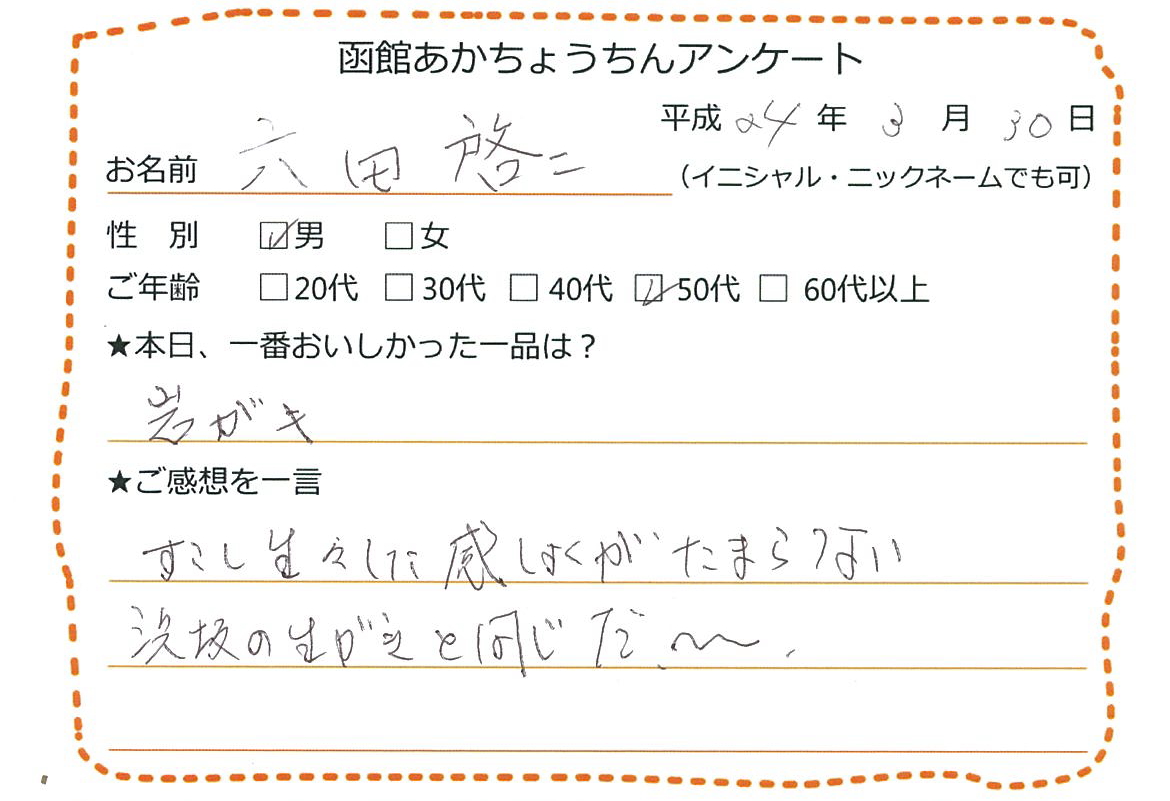 函館あかちょうちんアンケート
平成 24 年 3 月 30 日
お名前 六田 啓二 (イニシャル・ニックネームでも可)
性 別 ☑男 □女
ご年齢 □20代 □30代 □40代 ☑50代 □ 60代以上
★本日、一番おいしかった一品は?
岩がき
★ご感想を一言
すこし生々した感しょくがたまらない
の生がきと同じだ〜〜.